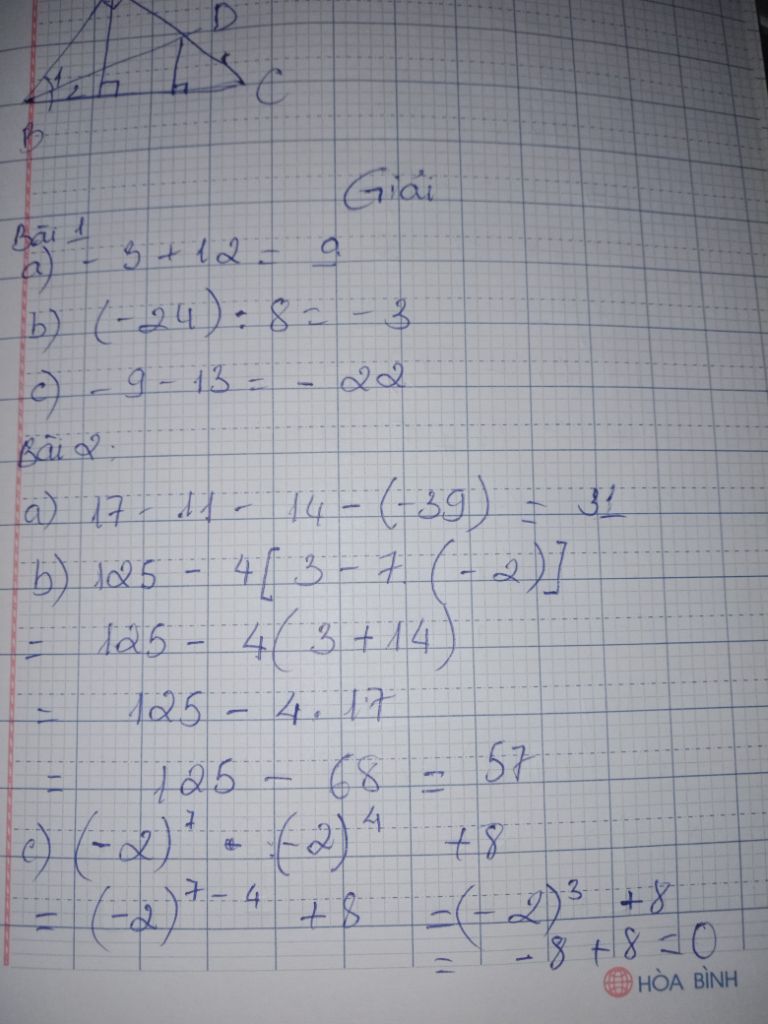 D
1
2
C
B
Giải
Bài 1
a) - 3 + 12 = 9
b) (-24) : 8 = - 3
c) - 9 - 13 = - 22
Bài 2:
a) 17 - 11 - 14 - (-39) = 31
b) 125 - 4[ 3 - 7 (- 2)]
= 125 - 4( 3 + 14)
= 125 - 4. 17
= 125 - 68 = 57
c) (-2)⁷ : (-2)⁴ + 8
= (-2)⁷⁻⁴ + 8 = (- 2)³ + 8
= - 8 + 8 = 0
HÒA BÌNH